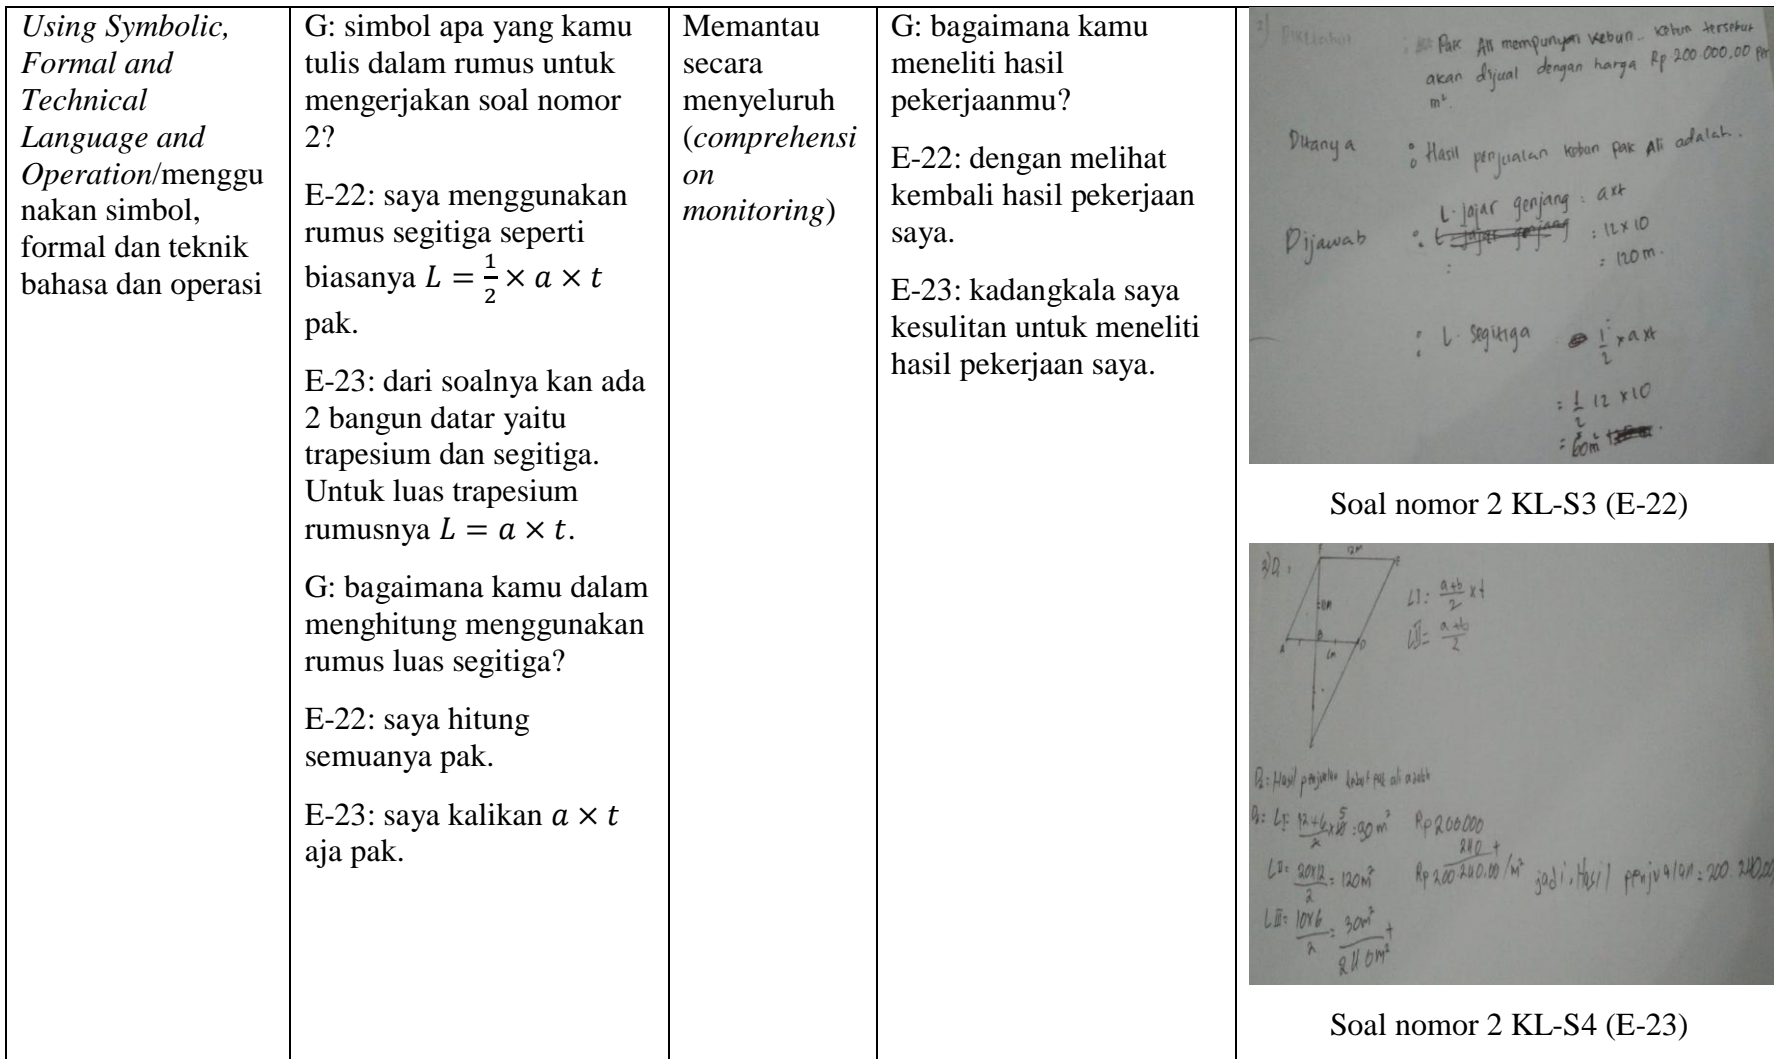 Using Symbolic,
Formal and
Technical
Language and
Operation/menggu
nakan simbol,
formal dan teknik
bahasa dan operasi
G: simbol apa yang kamu
tulis dalam rumus untuk
mengerjakan soal nomor
2?
E-22: saya menggunakan
rumus segitiga seperti
biasanya L = 1/2 × a × t
pak.
E-23: dari soalnya kan ada
2 bangun datar yaitu
trapesium dan segitiga.
Untuk luas trapesium
rumusnya L = a × t.
G: bagaimana kamu dalam
menghitung menggunakan
rumus luas segitiga?
E-22: saya hitung
semuanya pak.
E-23: saya kalikan a × t
aja pak.
Memantau
secara
menyeluruh
(comprehensi
on
monitoring)
G: bagaimana kamu
meneliti hasil
pekerjaanmu?
E-22: dengan melihat
kembali hasil pekerjaan
saya.
E-23: kadangkala saya
kesulitan untuk meneliti
hasil pekerjaan saya.
2) Diketahui : Pak Ali mempunyai kebun. kebun tersebut
akan dijual dengan harga Rp.200.000,00 per
m².
Ditanya : Hasil penjualan kebun pak Ali adalah.
Dijawab : L. jajar genjang : a x t
: 12 x 10
: 120 m.
: L. segitiga 1/2 x a x t
= 1/2 12 x 10
= 60 m²
Soal nomor 2 KL-S3 (E-22)
12m
LI: a+b/2 x t
LII= a+b/2
D2: Hasil penjualan kebun pak ali adalah
LI: 12+6/2 x 10 5 : 90 m² Rp 200000
240 +
LII= 20x12/2 = 120m² Rp 200.240.00/m² jadi, Hasil penjualan = 200.240,00
LIII= 10x6/2 = 30m² +
240m²
Soal nomor 2 KL-S4 (E-23)